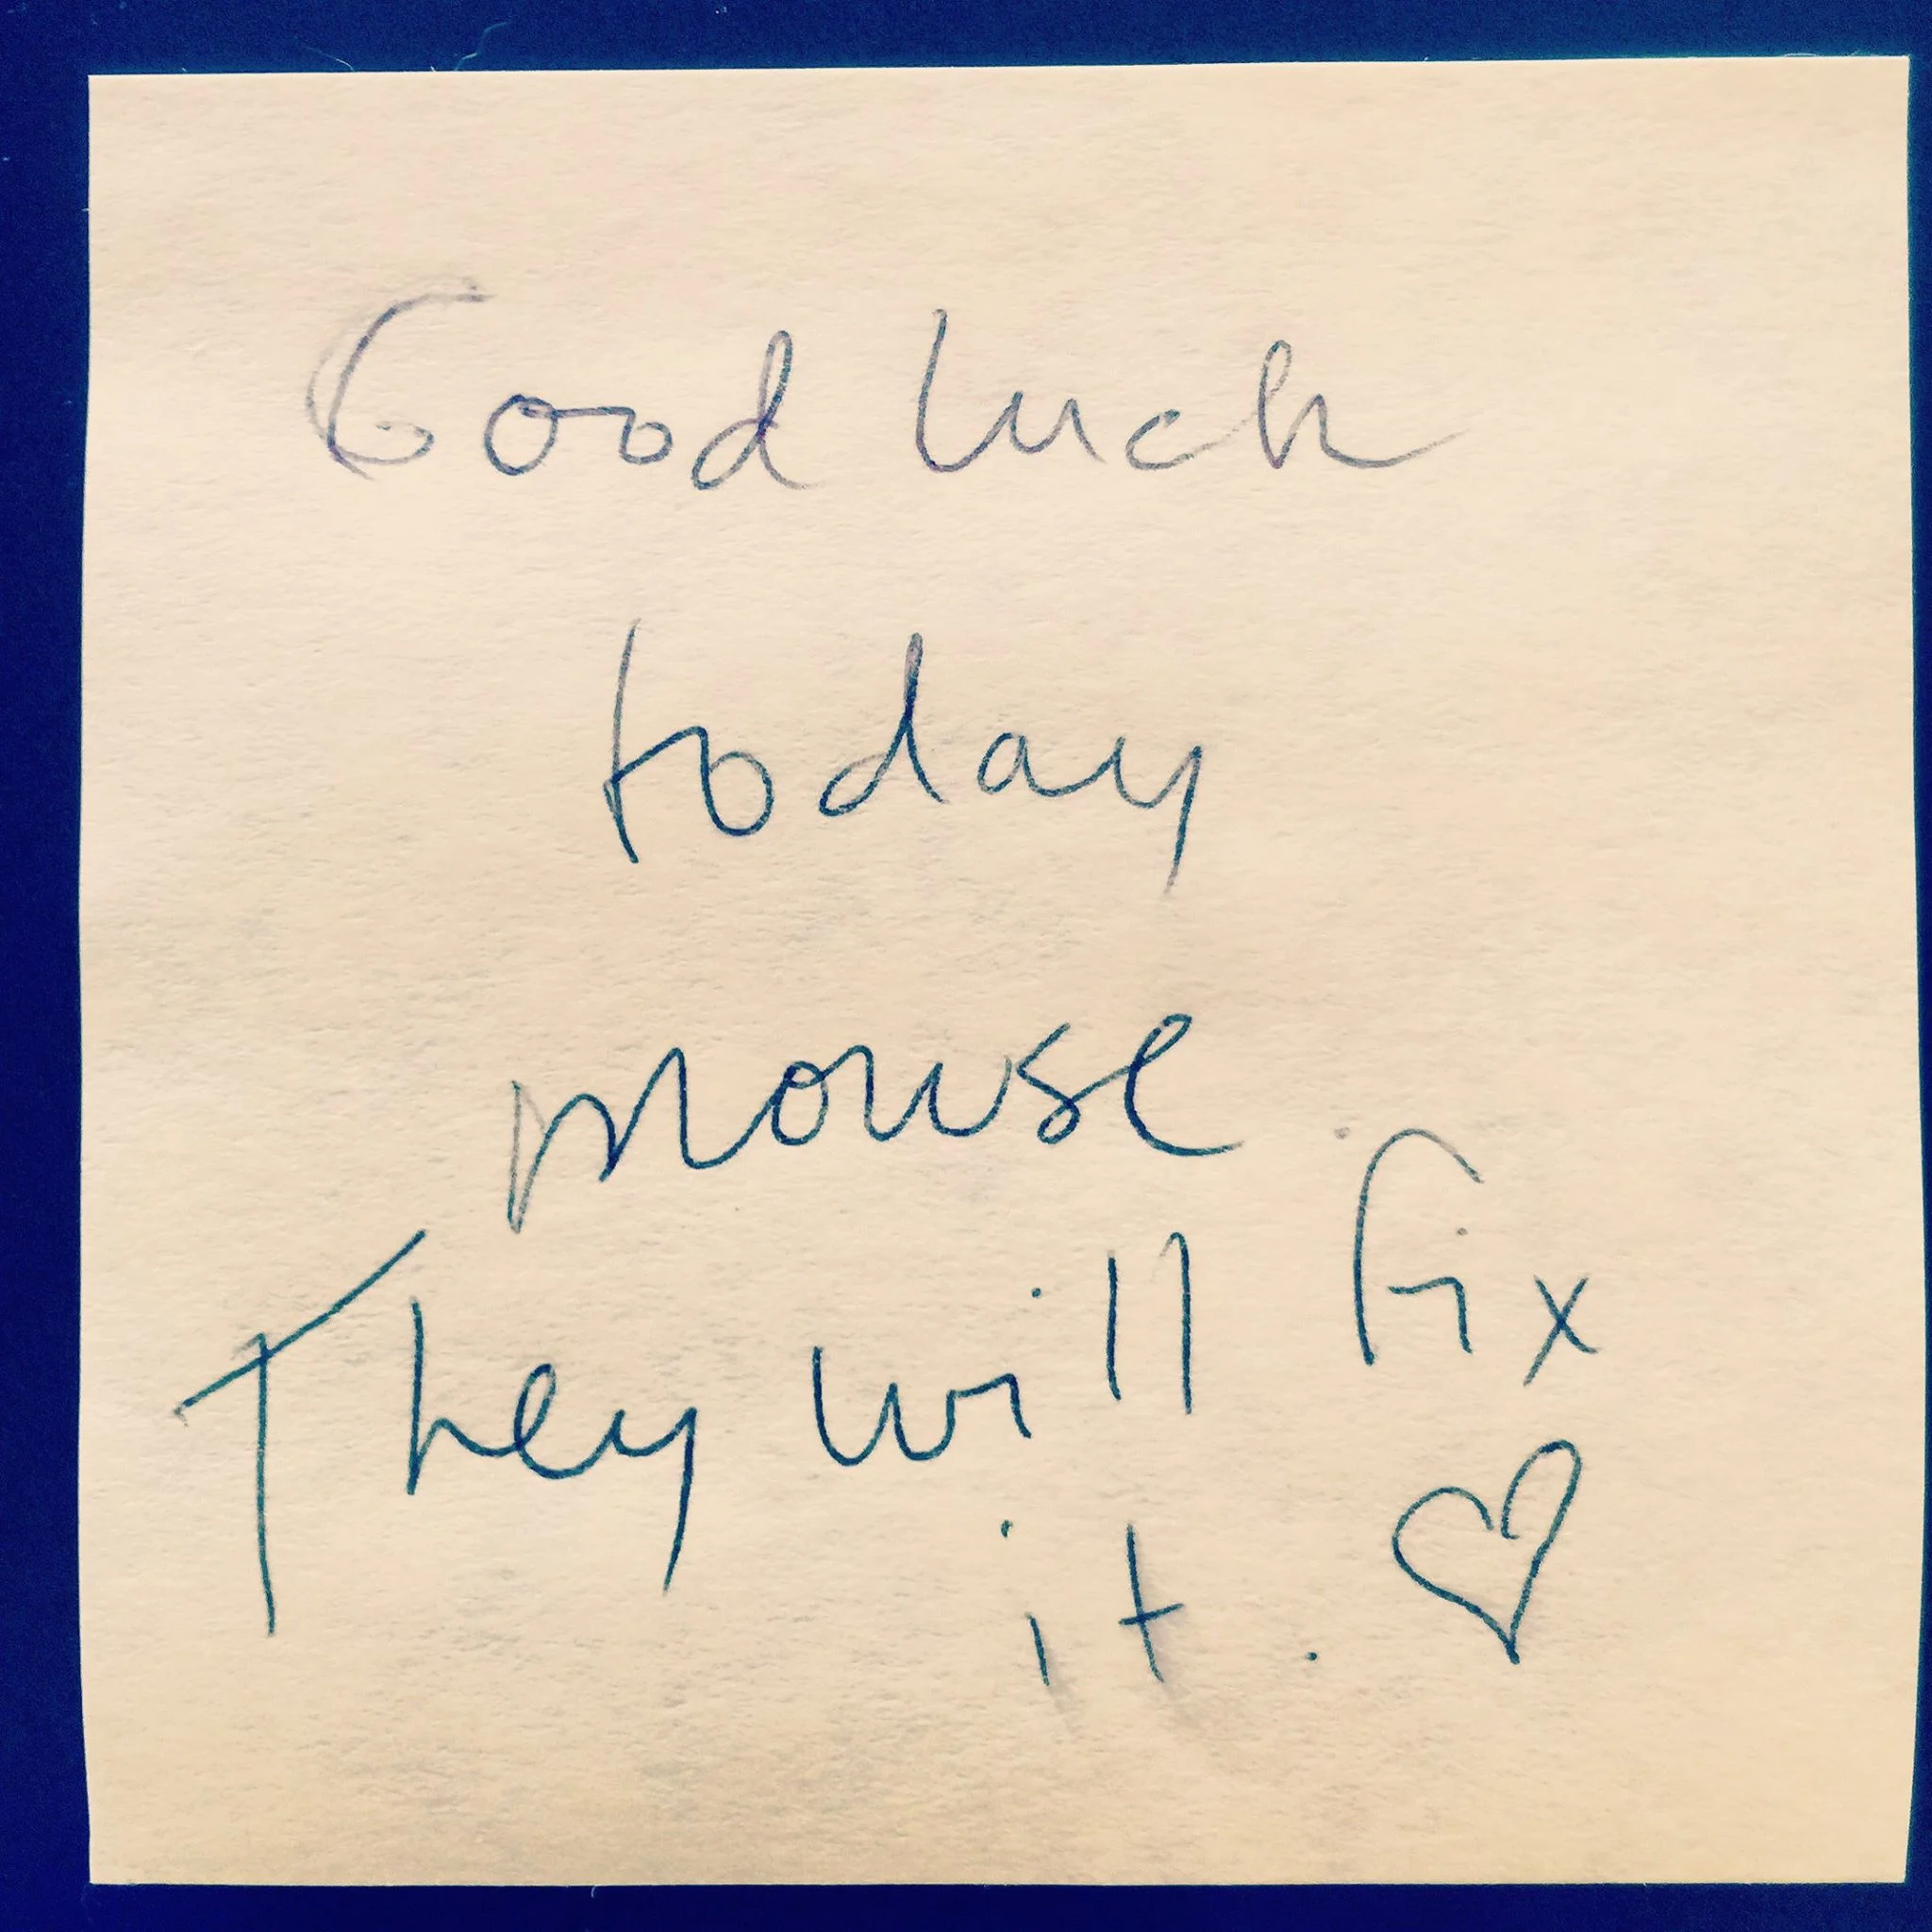 Good luck
today
mouse
They will fix
it. ♡